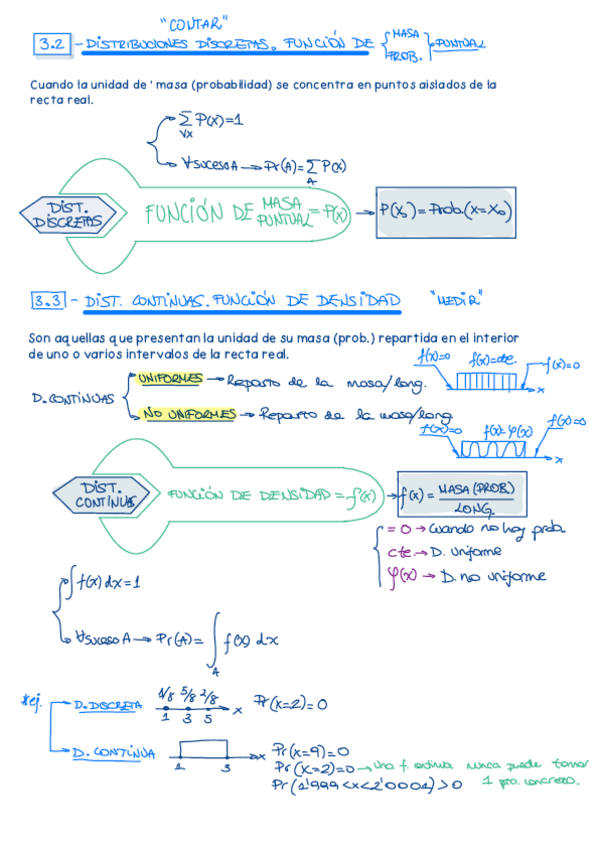 "CONTAR"
3.2 - DISTRIBUCIONES DISCRETAS. FUNCIÓN DE { MASA PROB. } PUNTUAL
Cuando la unidad de ' masa (probabilidad) se concentra en puntos aislados de la
recta real.
∑ P(x)=1
∀x
∀ suceso A → Pr(A)= ∑ P(x)
A
DIST. DISCRETAS
FUNCIÓN DE MASA PUNTUAL = P(x) → P(x₀) = Prob.(x=x₀)
3.3 - DIST. CONTINUAS. FUNCIÓN DE DENSIDAD "MEDIR"
Son aquellas que presentan la unidad de su masa (prob.) repartida en el interior
de uno o varios intervalos de la recta real.
f(x)=0 f(x)=cte. f(x)=0
x
D. CONTINUAS
UNIFORMES → Reparto de la masa/long.
NO UNIFORMES → Reparto de la masa/long.
f(x)=0 f(x)=φ(x) f(x)=0
x
DIST. CONTINUAS
FUNCIÓN DE DENSIDAD = f(x) → f(x) = MASA (PROB.) / LONG.
= 0 → Cuando no hay prob.
cte → D. Uniforme
φ(x) → D. no uniforme
∫ f(x) dx = 1
∀ suceso A → Pr(A) = ∫ f(x) dx
A
*ej.
D. DISCRETA
1/8 5/8 2/8
1 3 5 x
Pr(x=2)=0
D. CONTÍNUA
1 3 x
Pr(x=9)=0
Pr(x=2)=0 → Una f. continua nunca puede tomar
1 pto. concreto.
Pr(1'999<x<2'0001)>0